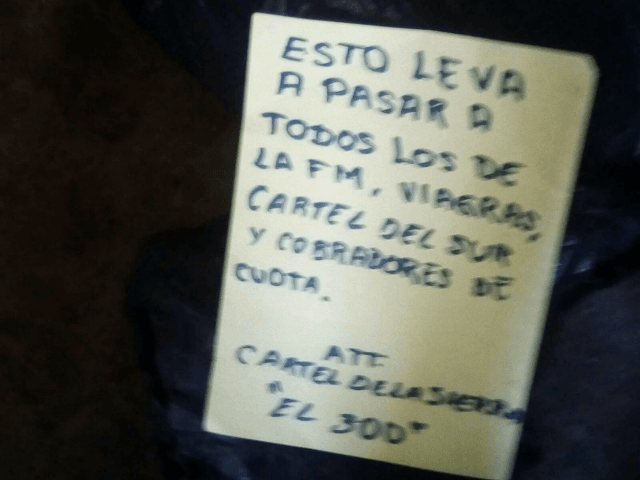 ESTO LE VA
A PASAR A
TODOS LOS DE
LA FM, VIAGRAS,
CARTEL DEL SUR
Y COBRADORES DE
CUOTA.
ATT.
CARTEL DE LA SIERRA
"EL 300"